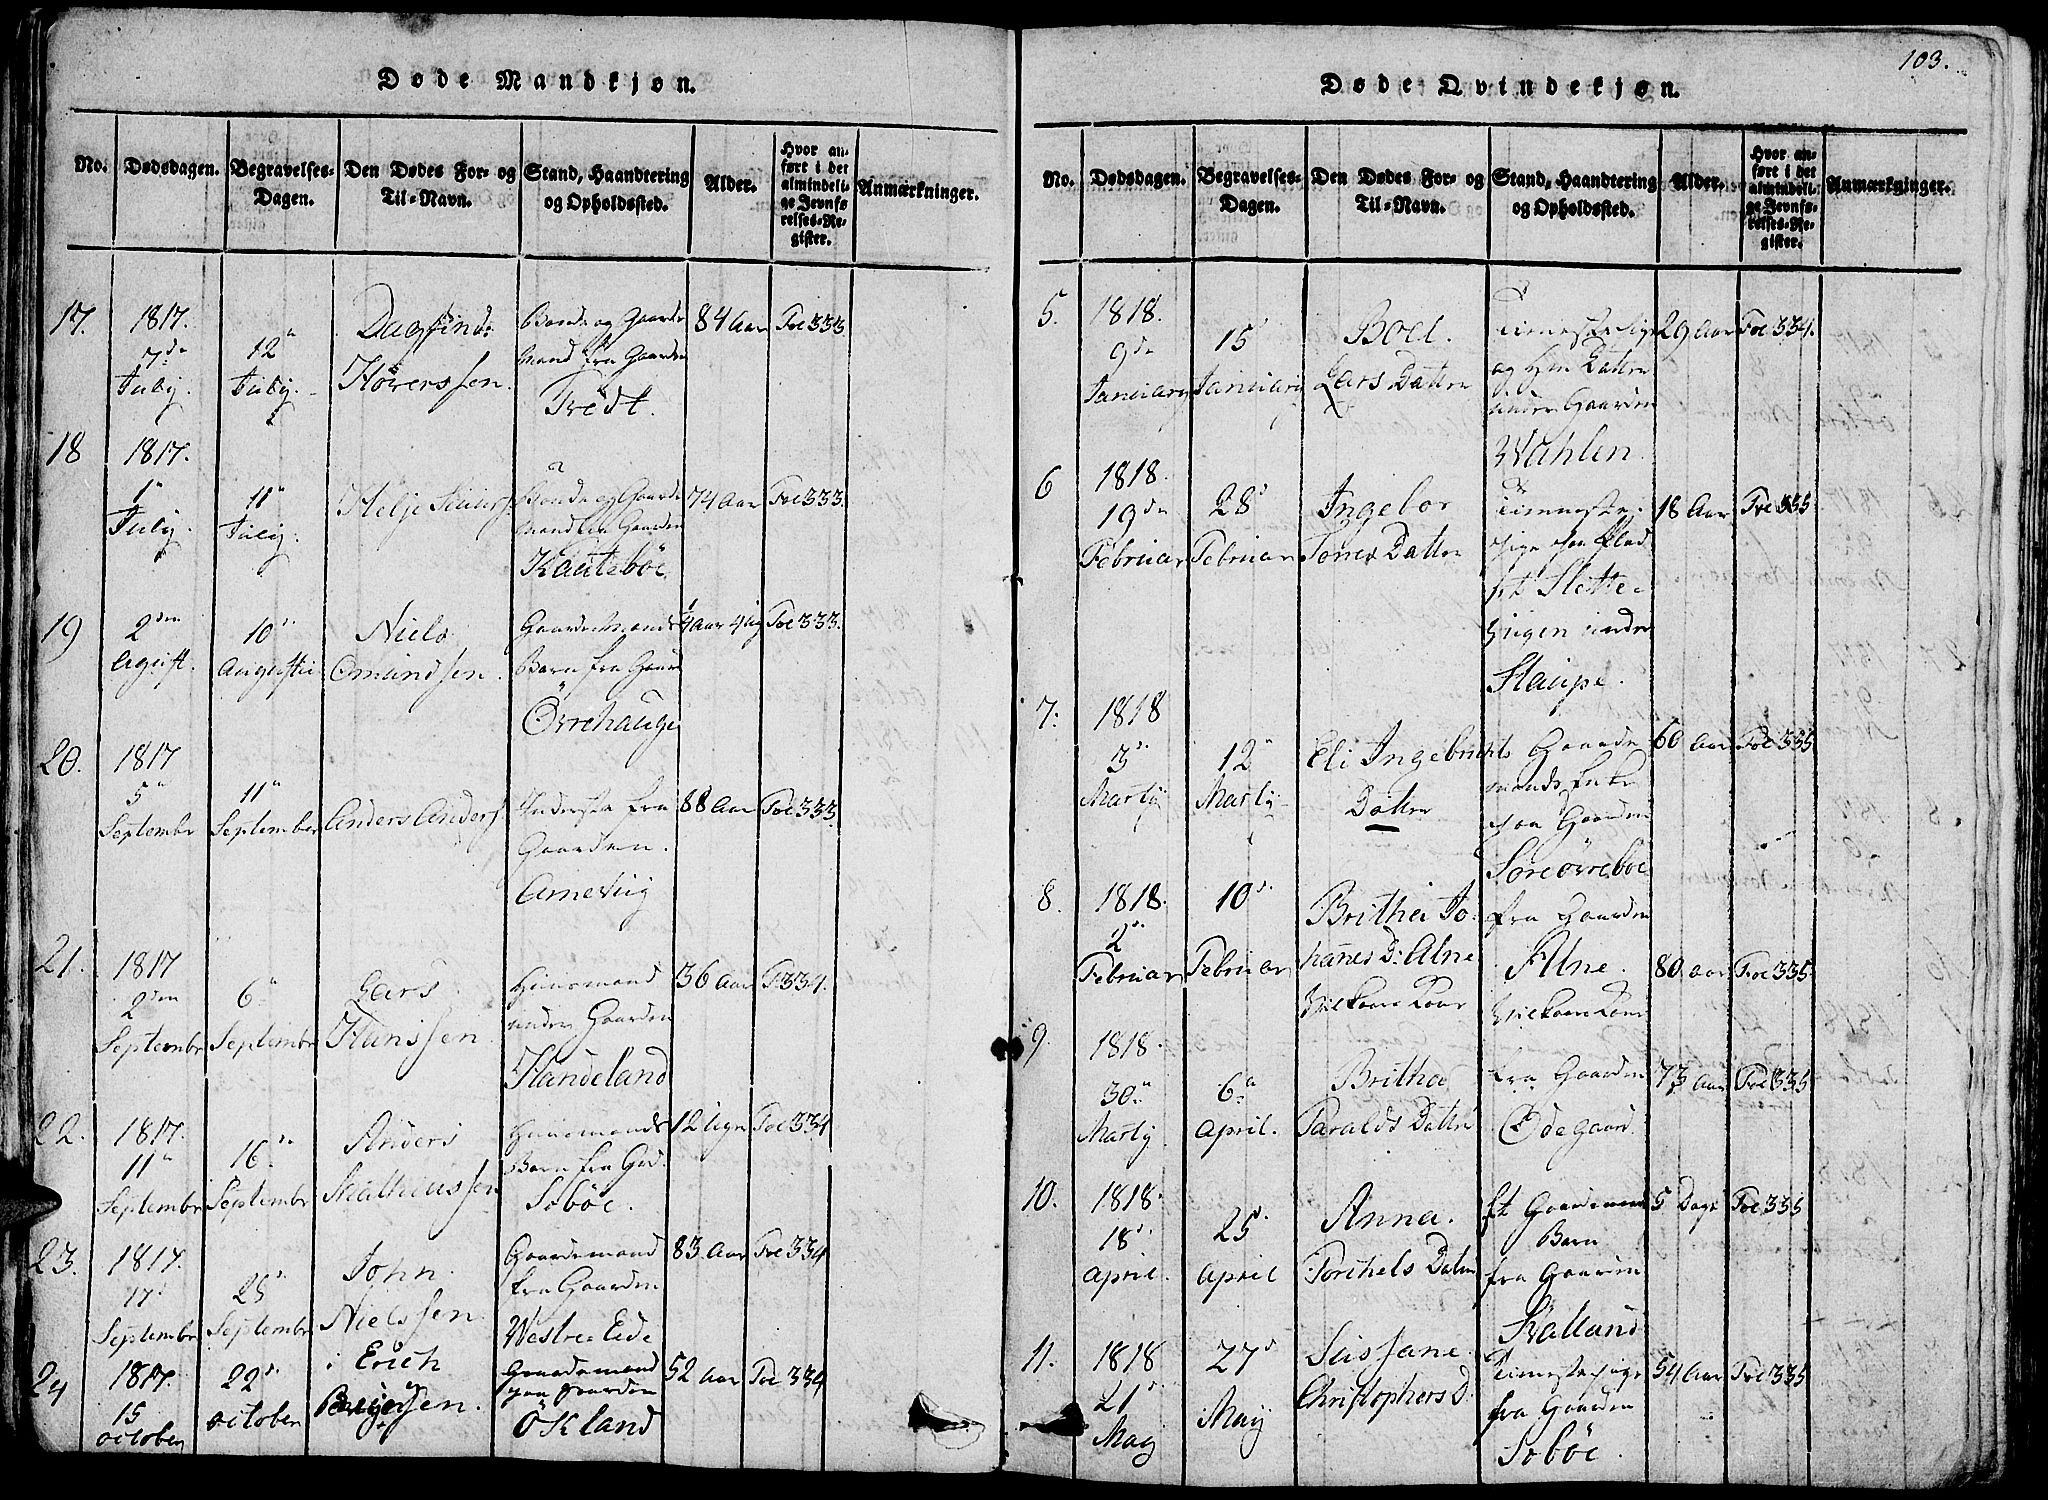 103.
Døde Mandkjøn.
No.
Dødsdagen.
Begravelses-
Dagen.
Den Dødes For- og
Til-Navn.
Stand, Haandtering
og Opholdssted.
Alder.
Hvor an-
ført i det
almindeli-
ge Jevnfø-
relses-Re-
gister.
Anmærkninger.
17.
1817.
7de
July.
12te
July.
Dagfind
Hoverssen.
Bonde og Gaard
Mand fra Gaarden
Tvedt.
84 Aar
Foe 333
18
1817.
1
July.
11
July.
Helje
Bonde og Gaard
Mand fra Gaarden
74 Aar
Foe 333.
19
2den
August.
10
Augusti
Niels
Omundssen.
Gaardmands
Barn fra Gaard
Øvrehauge
Foe 333.
20.
1817
5
Septembr
11
September
Anders Anders
Inderste fra
Gaarden.
Arnevig
88 Aar
Foe 333.
21.
1817
2den
Septembr
6
Septembr
Lars
Hanssen.
Huusmand
under Gaarden
Handeland
36 Aar
F 334.
22.
1817.
11
Septembr
16
Septembr
Anders
Mathiassen
Huusmands
Barn fra Grd.
Søbøe.
12 Uger
Foe 334
23.
1817.
17
Septembr
25
Septembr
John
Nielssen.
Gaardemand
fra Gaarden
Westre Eide
83 Aar
Foe 334
24
1817.
15
october
22
october
Erich
Gaardemand
paa Gaarden
Økland
52 Aar
Foe 334
Døde Qvindekjøn.
No.
Dødsdagen.
Begravelses-
Dagen.
Den Dødes For- og
Til-Navn.
Stand, Haandtering
og Opholdssted.
Alder.
Hvor an-
ført i det
almindeli-
ge Jevnfø-
relses-Re-
gister.
Anmærkninger.
5.
1818.
9de
January
15
January
Boel.
Lars Datter
Tienestepige
og Datter
under Gaarden
Wahlen.
29 Aar
Foe 334.
6
1818.
19de
Februar
28
Februar
Ingebor
Tones Datter
Tieneste-
pige paa Plad
under
Staupe.
18 Aar
Foe 335
7.
1818
3
Marty
12
Marty
Eli Ingebrichts
Datter
Gaard
mands Enke
paa Gaarden
Søreøvrebøe
60 Aar
Foe 335
8.
1818.
2
Februar
10
Februar
Britha Jo-
hannes D: Alne
Vilkaars Kone
fra Gaarden
Alne.
80 aar
Foe 335.
9.
1818.
30
Marty
6
April.
Britha
Taralds Datter
Vilkaars Kone
fra Gaarden
Ødegaard.
73 Aar
Foe 335
10.
1818.
18
April.
25
April
Anna.
Torchels Datter
et Gaardemand
Barn
fra Gaarden
5 Dage
Foe 335
11.
1818
21
May
27
May
Susjane.
Christophers D.
Tienestepige
fra Gaarden
Søbøe.
54 Aar
Foe 335